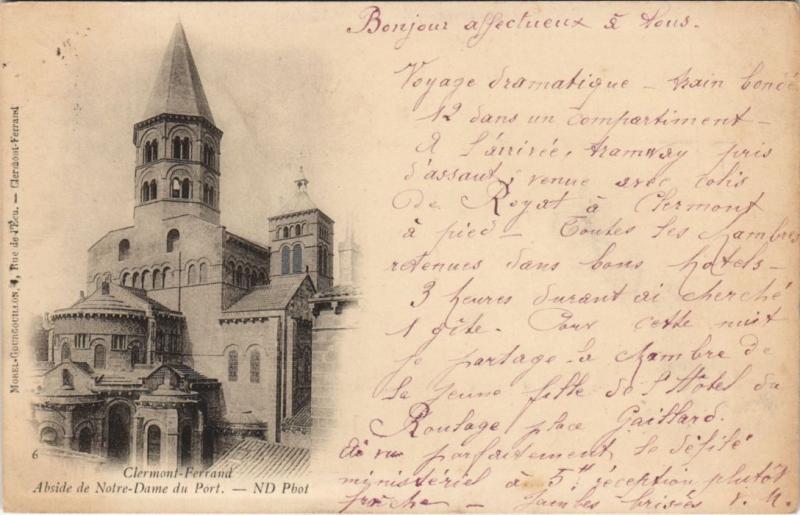 Bonjour affectueux à Vous.
Voyage dramatique – train bondé
12 dans un compartiment –
A l'arrivée, tramway pris
d'assaut, venue avec colis
de Royat à Clermont
à pied – Toutes les chambres
retenues dans bons hotels –
3 heures durant ai cherché
1 gîte. Pour cette nuit
je partage la chambre de
la jeune fille de l'Hôtel du
Roulage place Gaillard.
Ai vu parfaitement le défilé
ministériel à 5 réception plutôt
fraîche – Jambes brisées V. M.
MOREL-GOURGOUILLON, 4, Rue de l'Écu. — Clermont-Ferrand
6
Clermont-Ferrand
Abside de Notre-Dame du Port. — ND Phot